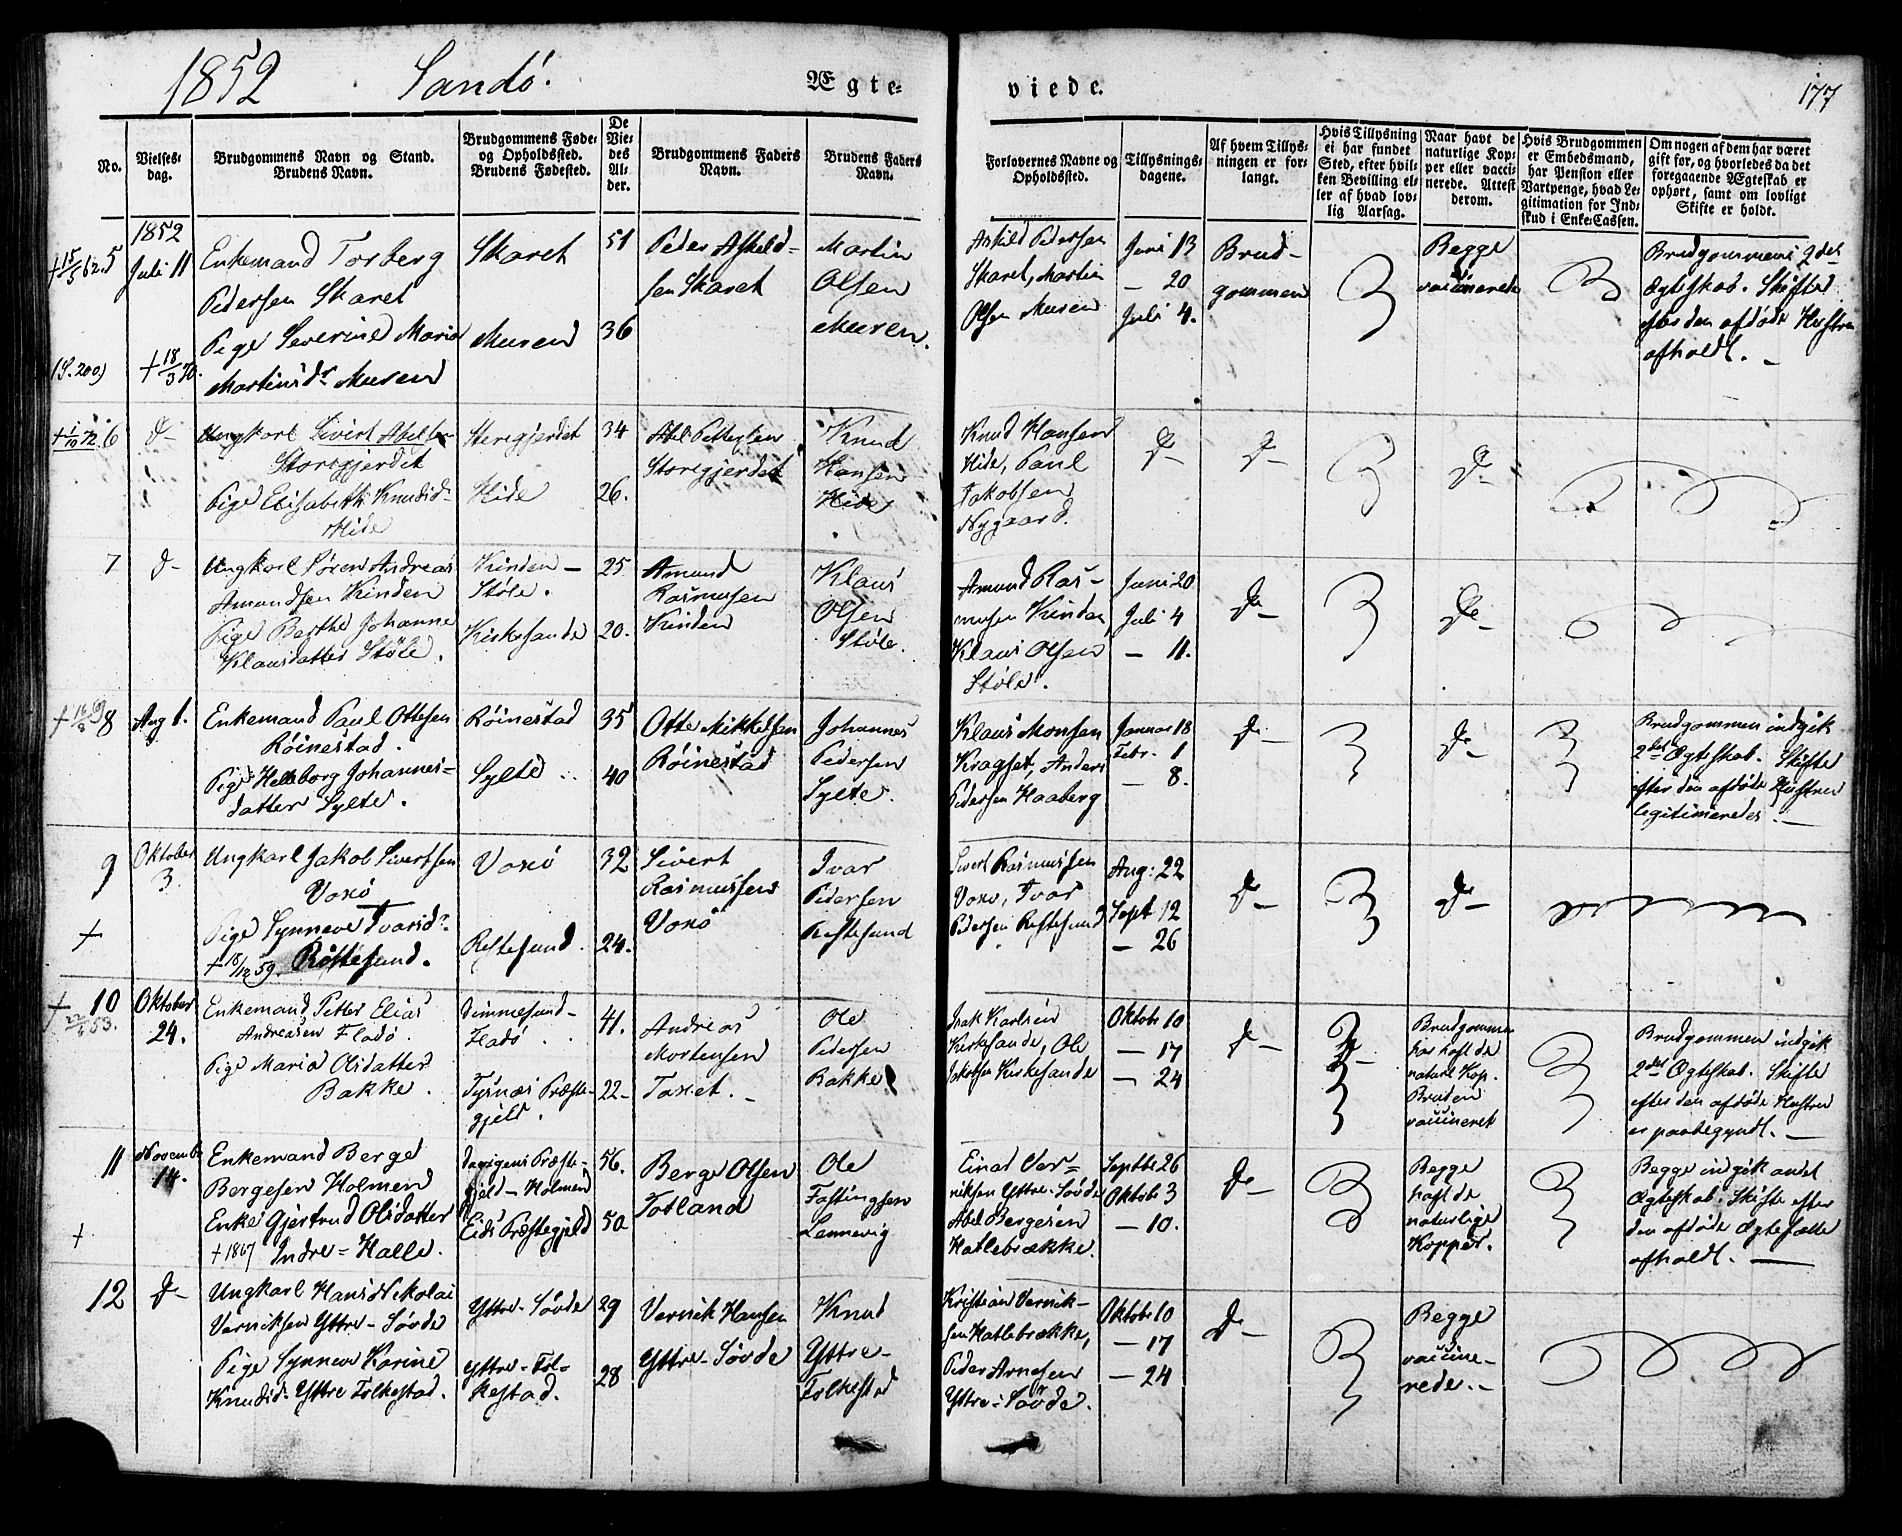 1852 Sandö. Ægte-
viede. 177
No.
Vielses-
dag.
Brudgommens Navn og Stand.
Brudens Navn.
Brudgommens Føde-
og Opholdssted.
Brudens Fødested.
De
Vie-
des
Al-
der.
Brudgommens Faders
Navn.
Brudens Faders
Navn.
Forlovernes Navne og
Opholdssted.
Tillysnings-
dagene.
Af hvem Tillys-
ningen er for-
langt.
Hvis Tillysning
ei har fundet
Sted, efter hvil-
ken Bevilling el-
ler af hvad lov-
lig Aarsag.
Naar havt de
naturlige Kop-
per eller vacci-
nerede. Attest
derom.
Hvis Brudgommen
er Embedsmand,
har Pension eller
Vartpenge, hvad Le-
gitimation for Ind-
skud i Enke-Cassen.
Om nogen af dem har været
gift før, og hvorledes da det
foregaaende Ægteskab er
ophørt, samt om lovligt
Skifte er holdt.
+ 15/5 62. 5
1852
Juli 11
(S. 200)
+ 18/3 70.
Enkemand Torberg
Pedersen Skaret
Pige Severine Maria
Martinsdr Muren
Skaret
Muren
51
36
Peder Askeld-
sen Skaret
Martin
Olsen
Muren.
Askild Pedersen
Skaret, Martin
Olsen Muren
Juni 13
— 20
Juli 4.
Brud-
gommen
Begge
vaccinerede
Brudgommens 2det
Ægteskab. Skiftet
efter den afdøde Hustru
afholdt. —
+ 1/10 72. 6
D—
Ungkarl Sivert Abelsen
Storegjerdet
Pige Elisabeth Knudsdr
Hide
Storegjerdet
Hide
34
26.
Abel Pettersen
Storegjerdet
Knud
Hansen
Hide
Knud Hansen
Hide, Paul
Jakobsen
Nygaard.
D—
D—
D—
7
D—
Ungkarl Søren Andreas
Amundsen Kinden
Pige Berthe Johanne
Klausdatter Støle.
Kinden —
Støle.
Kirkesande
25
20.
Amund
Rasmusen
Kinden
Klaus
Olsen
Støle.
Amund Ras-
musen Kinden,
Klaus Olsen
Støle.
Juni 20
Juli 4
— 11.
D—
D—
8
Aug 1.
Enkemand Paul Ottesen
Röinestad.
Pige Helleborg Johannes-
datter Sylte.
Röinestad
Sylte
35
40
Otte Mikkelsen
Röinestad
Johannes
Pedersen
Sylte.
Klaus Monsen
Kragset, Anders
Pedersen Haaberg
Januar 18
Febr. 1
— 8.
D—
D—
Brudgommen indgik
2det Ægteskab. Skifte
efter den afdøde Hustru
legitimeredes. —
9
+
Oktober
3.
Ungkarl Jakob Sivertsen
Voxö
Pige Synneve Ivarsdr
+ 18/12 59. Röttesund.
Voxö
Røttesund.
32
24.
Sivert
Rasmussen
Voxö
Ivar
Pedersen
Røttesund
Sivert Rasmussen
Voxø, Ivar
Pedersen Røttesund
Aug: 22
Sept 12
— 26
D—
D—
+ 10
22/6 53.
Oktober
24.
Enkemand Petter Elias
Andreasen Flodö.
Pige Maria Olsdatter
Bakke.
Dimmesund-
Flodö.
Tysnæs Præste-
gjeld.
41.
22—
Andreas
Mortensen
Taxet. —
Ole
Pedersen
Bakke
Isak Karlsen
Kirkesande, Ole
Jakobsen Kirkesande
Oktobr 10
— 17
— 24
D—
D—
Brudgommen
har haft de
naturl Kop.
Bruden
vaccineret
Brudgommen indgik
2det Ægteskab. Skifte
efter den afdøde Hustru
er paabegyndt. —
11
+
November
14.
Enkemand Berge
Bergesen Holmen
Enke Gjertrud Olsdatter
+ 1867 Indre-Halle.
Davigens Præste-
gjeld — Holmen
Eids Præstegjeld
56.
50.
Berge Olsen
Totland
Ole
Fastingsen
Lennevig
Einar Ver-
niksen Yttre-Sövde
Abel Bergesen
Hatlebrække.
Septbr 26
Oktobr 3
— 10.
D—
Begge
haft de
naturlige
Kopper.
Begge indgik andet
Ægteskab. Skifte efter
den afdøde Ægtefælle
afholdt. —
12
D—
Ungkarl Hans Nikolai
Verniksen Yttre-Sövde
Pige Synneve Karine
Knudsd. Yttre Folkestad.
Yttre-Sövde
Yttre-Fol-
kestad.
29
28
Vernik Hansen
Yttre-Sövde
Knud
Yttre-
Folkestad
Kristian Vernik-
sen Hatlebrække,
Peder Arnesen
Yttre-Sövde.
Oktobr 10
— 17
— 24
D—
Begge
vaccine-
rede. —